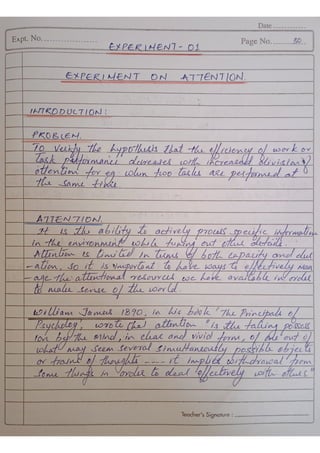 Date ............
Expt. No. ................... Page No. ........ 50
EXPERIMENT-01
EXPERIMENT ON ATTENTION.
INTRODUCTION:
PROBLEM.
To verify the hypothesis that the efficiency of work or
task performance decreases with increased division of
attention for eg when two tasks are performed at
the same time
ATTENTION.
It is the ability to actively process specific information
in the environment while tuning out other details.
Attention is limited in terms of both capacity and dur
-ation. so it is important to have ways to effectively man
age the attentional resources we have available in order
to make sense of the world.
William James 1890, in his book 'The Principals of
Psycholog', wrote that attention "is the taking possess
ion by the mind, in clear and vivid form, of one out of
what may seem several simultaneously possible objects
or trains of thoughts ---- it implied withdrawal from
some things in order to deal effectively with others"
Teacher's Signature :